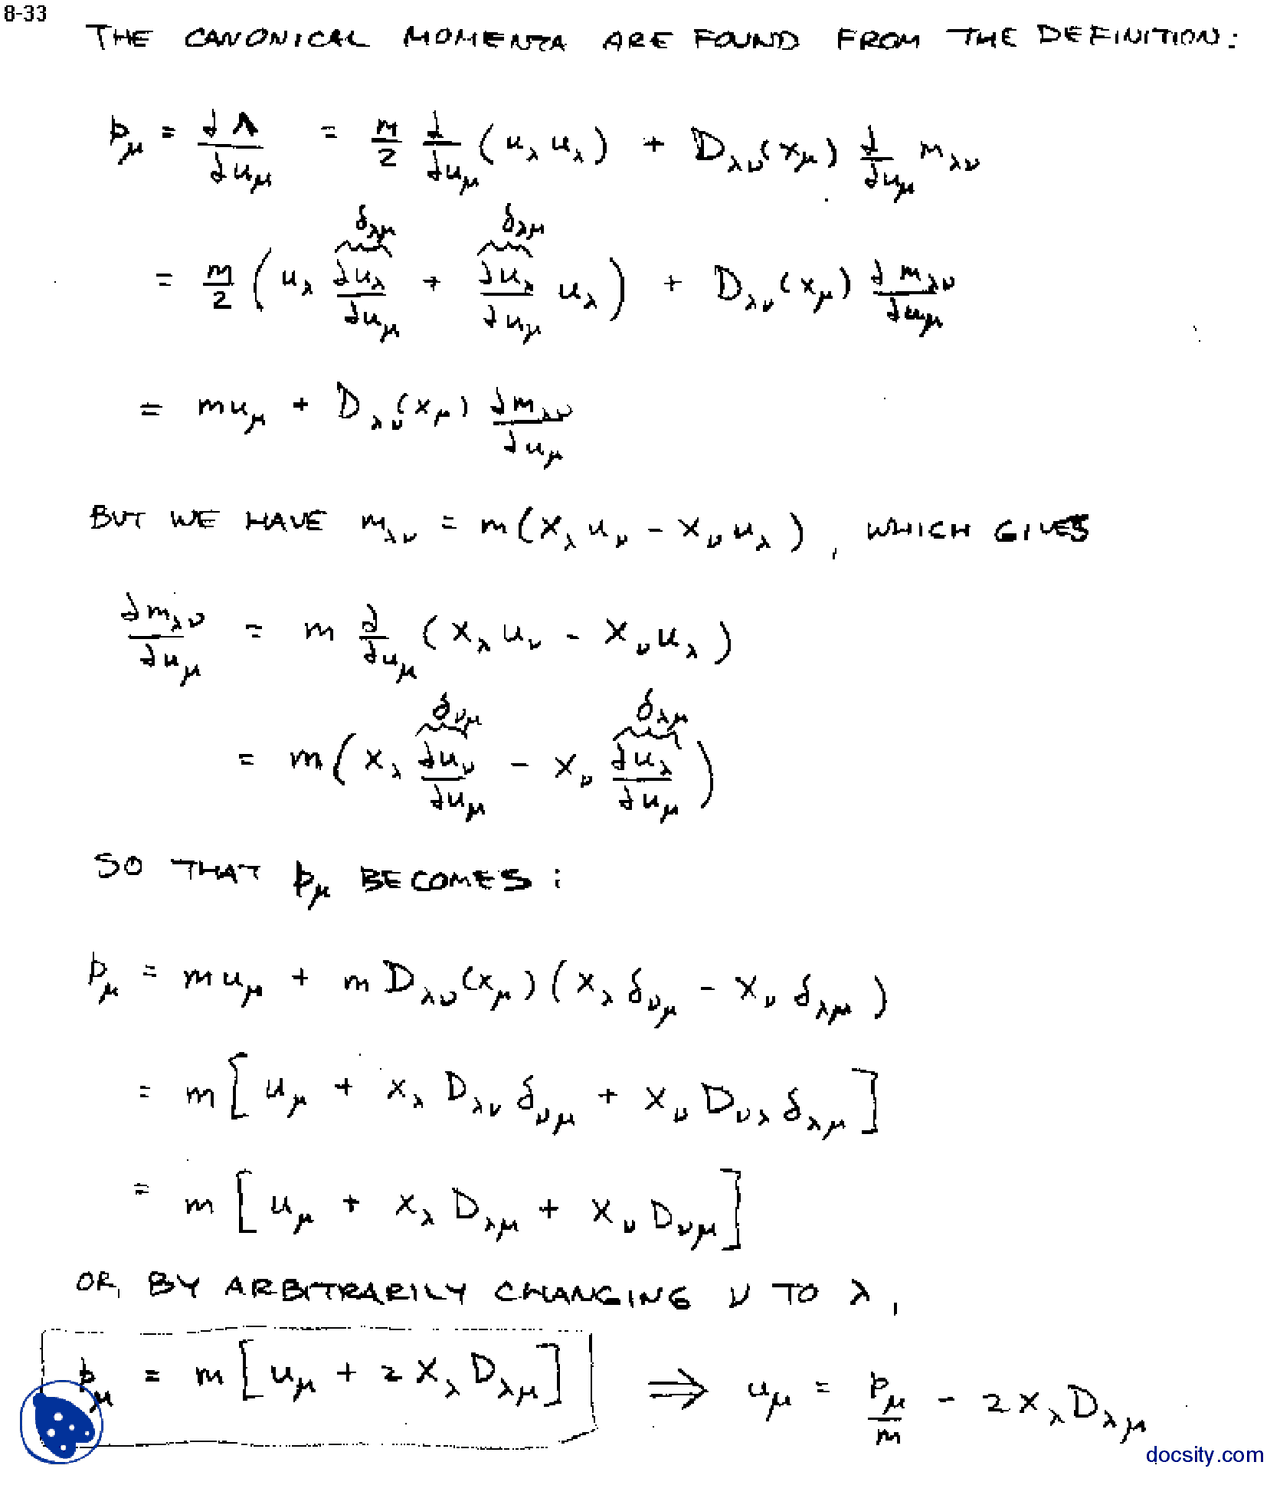 8-33
THE CANONICAL MOMENTA ARE FOUND FROM THE DEFINITION:
p_μ = ∂Λ/∂u_μ = m/2 ∂/∂u_μ (u_λ u_λ) + D_λν(x_μ) ∂/∂u_μ m_λν
= m/2 ( u_λ ∂u_λ/∂u_μ {δ_λμ} + ∂u_λ/∂u_μ {δ_λμ} u_λ ) + D_λν(x_μ) ∂m_λν/∂u_μ
= mu_μ + D_λν(x_μ) ∂m_λν/∂u_μ
BUT WE HAVE m_λν = m(x_λ u_ν - x_ν u_λ), WHICH GIVES
∂m_λν/∂u_μ = m ∂/∂u_μ (x_λ u_ν - x_ν u_λ)
= m( x_λ ∂u_ν/∂u_μ {δ_νμ} - x_ν ∂u_λ/∂u_μ {δ_λμ} )
SO THAT p_μ BECOMES:
p_μ = mu_μ + m D_λν(x_μ)(x_λ δ_νμ - x_ν δ_λμ)
= m[ u_μ + x_λ D_λν δ_νμ + x_ν D_νλ δ_λμ ]
= m[ u_μ + x_λ D_λμ + x_ν D_νμ ]
OR, BY ARBITRARILY CHANGING ν TO λ,
p_μ = m[ u_μ + 2 x_λ D_λμ ] ⇒ u_μ = p_μ/m - 2x_λ D_λμ
docsity.com